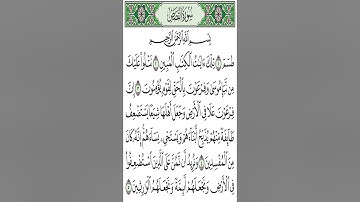 سُورَةُ القَصَصِ
بِسْمِ اللَّهِ الرَّحْمَٰنِ الرَّحِيمِ
طسٓمٓ ۝١ تِلْكَ ءَايَٰتُ ٱلْكِتَٰبِ ٱلْمُبِينِ ۝٢ نَتْلُوا۟ عَلَيْكَ
مِن نَّبَإِ مُوسَىٰ وَفِرْعَوْنَ بِٱلْحَقِّ لِقَوْمٍ يُؤْمِنُونَ ۝٣ إِنَّ
فِرْعَوْنَ عَلَا فِى ٱلْأَرْضِ وَجَعَلَ أَهْلَهَا شِيَعًا يَسْتَضْعِفُ
طَآئِفَةً مِّنْهُمْ يُذَبِّحُ أَبْنَآءَهُمْ وَيَسْتَحْىِۦ نِسَآءَهُمْ ۚ إِنَّهُۥ كَانَ
مِنَ ٱلْمُفْسِدِينَ ۝٤ وَنُرِيدُ أَن نَّمُنَّ عَلَى ٱلَّذِينَ ٱسْتُضْعِفُوا۟
فِى ٱلْأَرْضِ وَنَجْعَلَهُمْ أَئِمَّةً وَنَجْعَلَهُمُ ٱلْوَٰرِثِينَ ۝٥